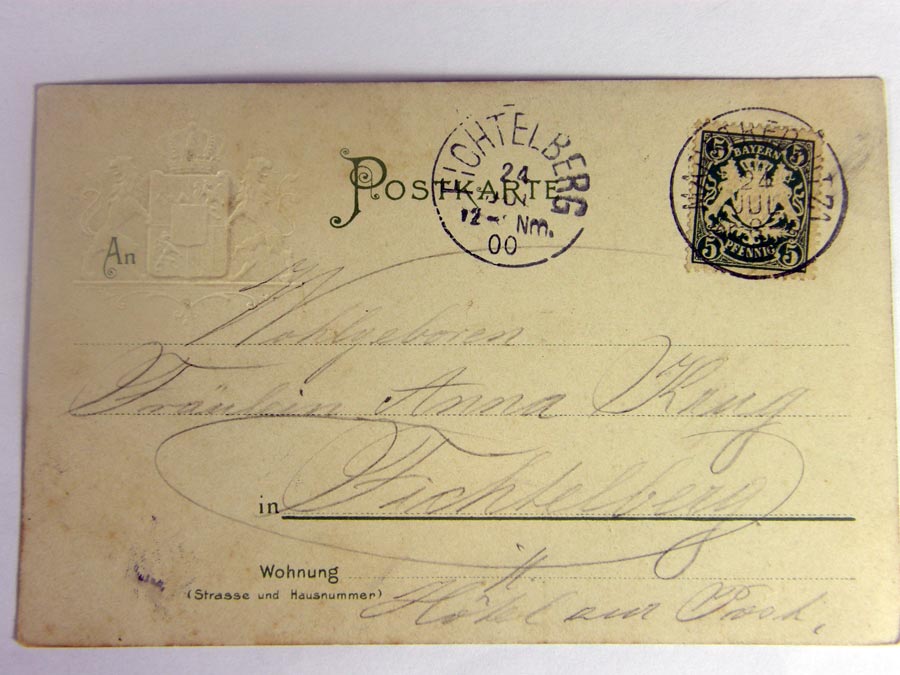 POSTKARTE
FICHTELBERG
24
JUN
12- Nm.
00
BAYERN
5 5
24
JUN
5 PFENNIG 5
An
Wohlgeboren
Fräulein Anna Krug
in Fichtelberg
Wohnung
(Strasse und Hausnummer)
Hôtel zur Post.